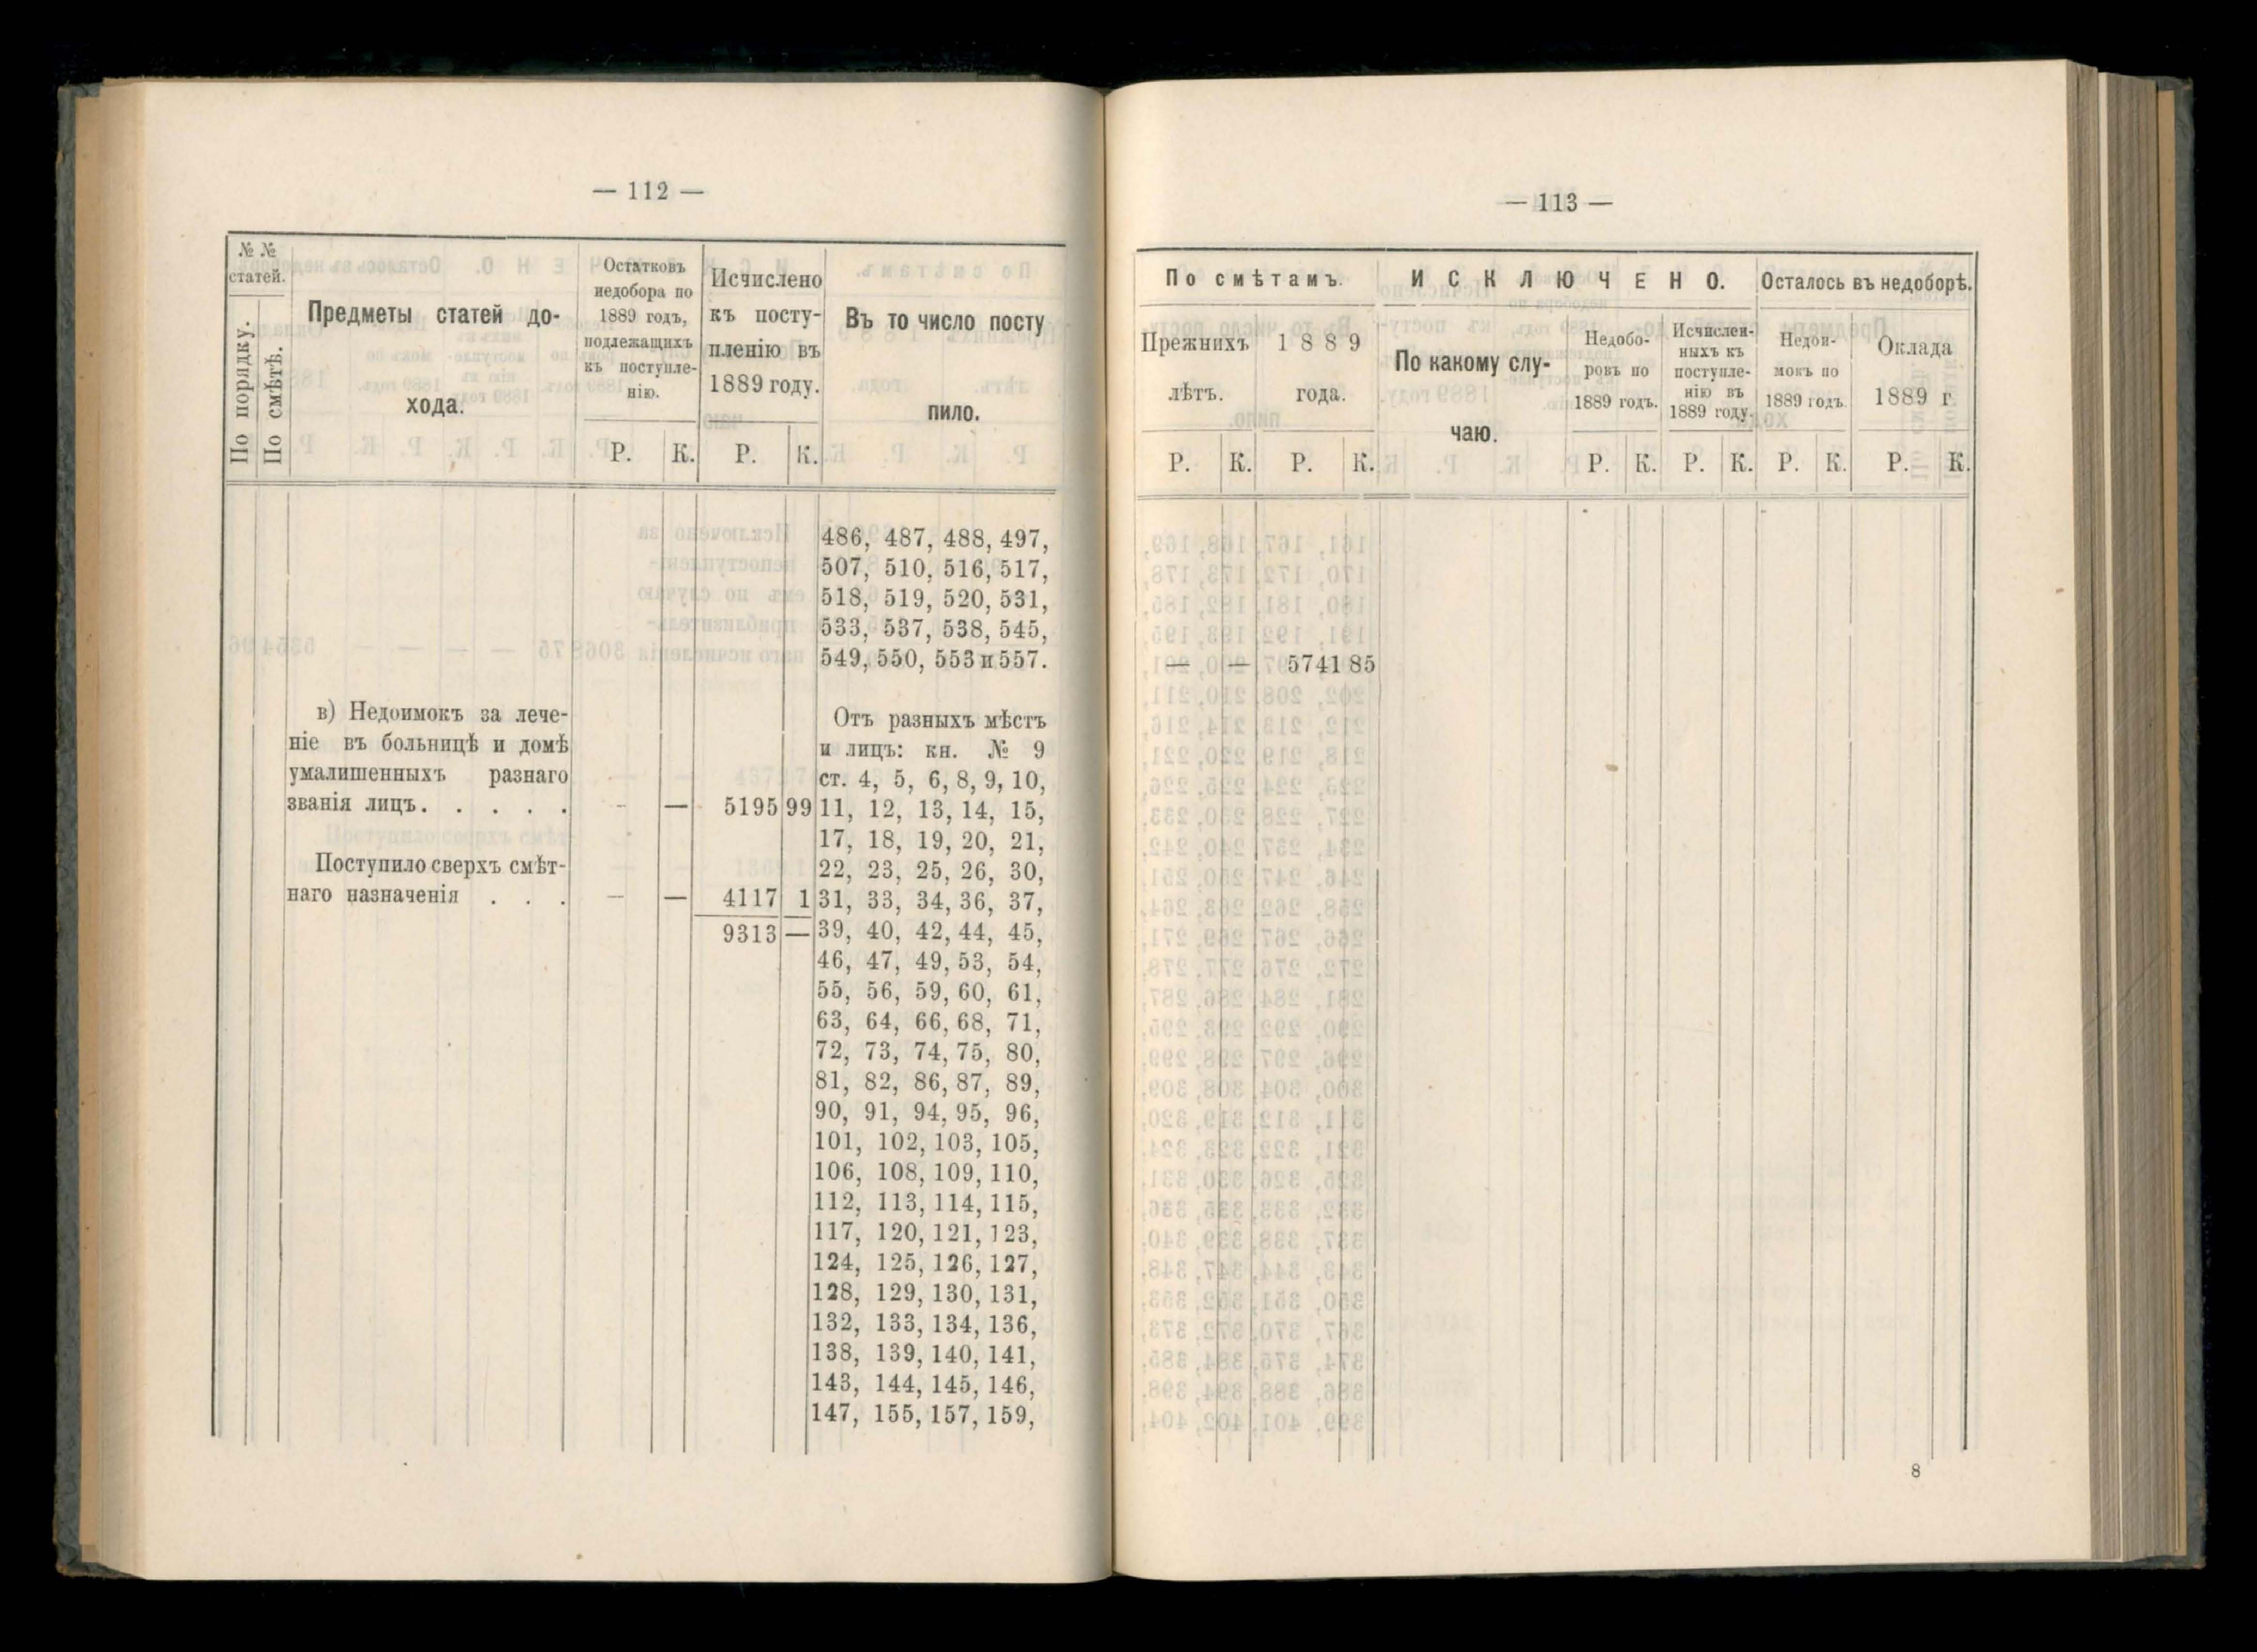 — 112 —
№ №
статей.
По порядку.
По смѣтѣ.
Предметы статей до-
хода.
Остатковъ
недобора по
1889 годъ,
подлежащихъ
къ поступле-
нію.
Исчислено
къ посту-
пленію въ
1889 году.
Въ то число посту
пило.
Р. К. Р. К.
486, 487, 488, 497,
507, 510, 516, 517,
518, 519, 520, 531,
533, 537, 538, 545,
549, 550, 553 и 557.
в) Недоимокъ за лече-
ніе въ больницѣ и домѣ
умалишенныхъ разнаго
званія лицъ. . . . . . - — 5195 99
Поступило сверхъ смѣт-
наго назначенія . . . — — 4117 1
9313 —
Отъ разныхъ мѣстъ
и лицъ: кн. № 9
ст. 4, 5, 6, 8, 9, 10,
11, 12, 13, 14, 15,
17, 18, 19, 20, 21,
22, 23, 25, 26, 30,
31, 33, 34, 36, 37,
39, 40, 42, 44, 45,
46, 47, 49, 53, 54,
55, 56, 59, 60, 61,
63, 64, 66, 68, 71,
72, 73, 74, 75, 80,
81, 82, 86, 87, 89,
90, 91, 94, 95, 96,
101, 102, 103, 105,
106, 108, 109, 110,
112, 113, 114, 115,
117, 120, 121, 123,
124, 125, 126, 127,
128, 129, 130, 131,
132, 133, 134, 136,
138, 139, 140, 141,
143, 144, 145, 146,
147, 155, 157, 159,
— 113 —
По смѣтамъ.
ИСКЛЮЧЕНО.
Осталось въ недоборѣ.
Прежнихъ
лѣтъ.
1889
года.
По какому слу-
чаю.
Недобо-
ровъ по
1889 годъ.
Исчислен-
ныхъ къ
поступле-
нію въ
1889 году.
Недои-
мокъ по
1889 годъ.
Оклада
1889 г
Р. К. Р. К. Р. К. Р. К. Р. К. Р. К.
— — 5741 85
8